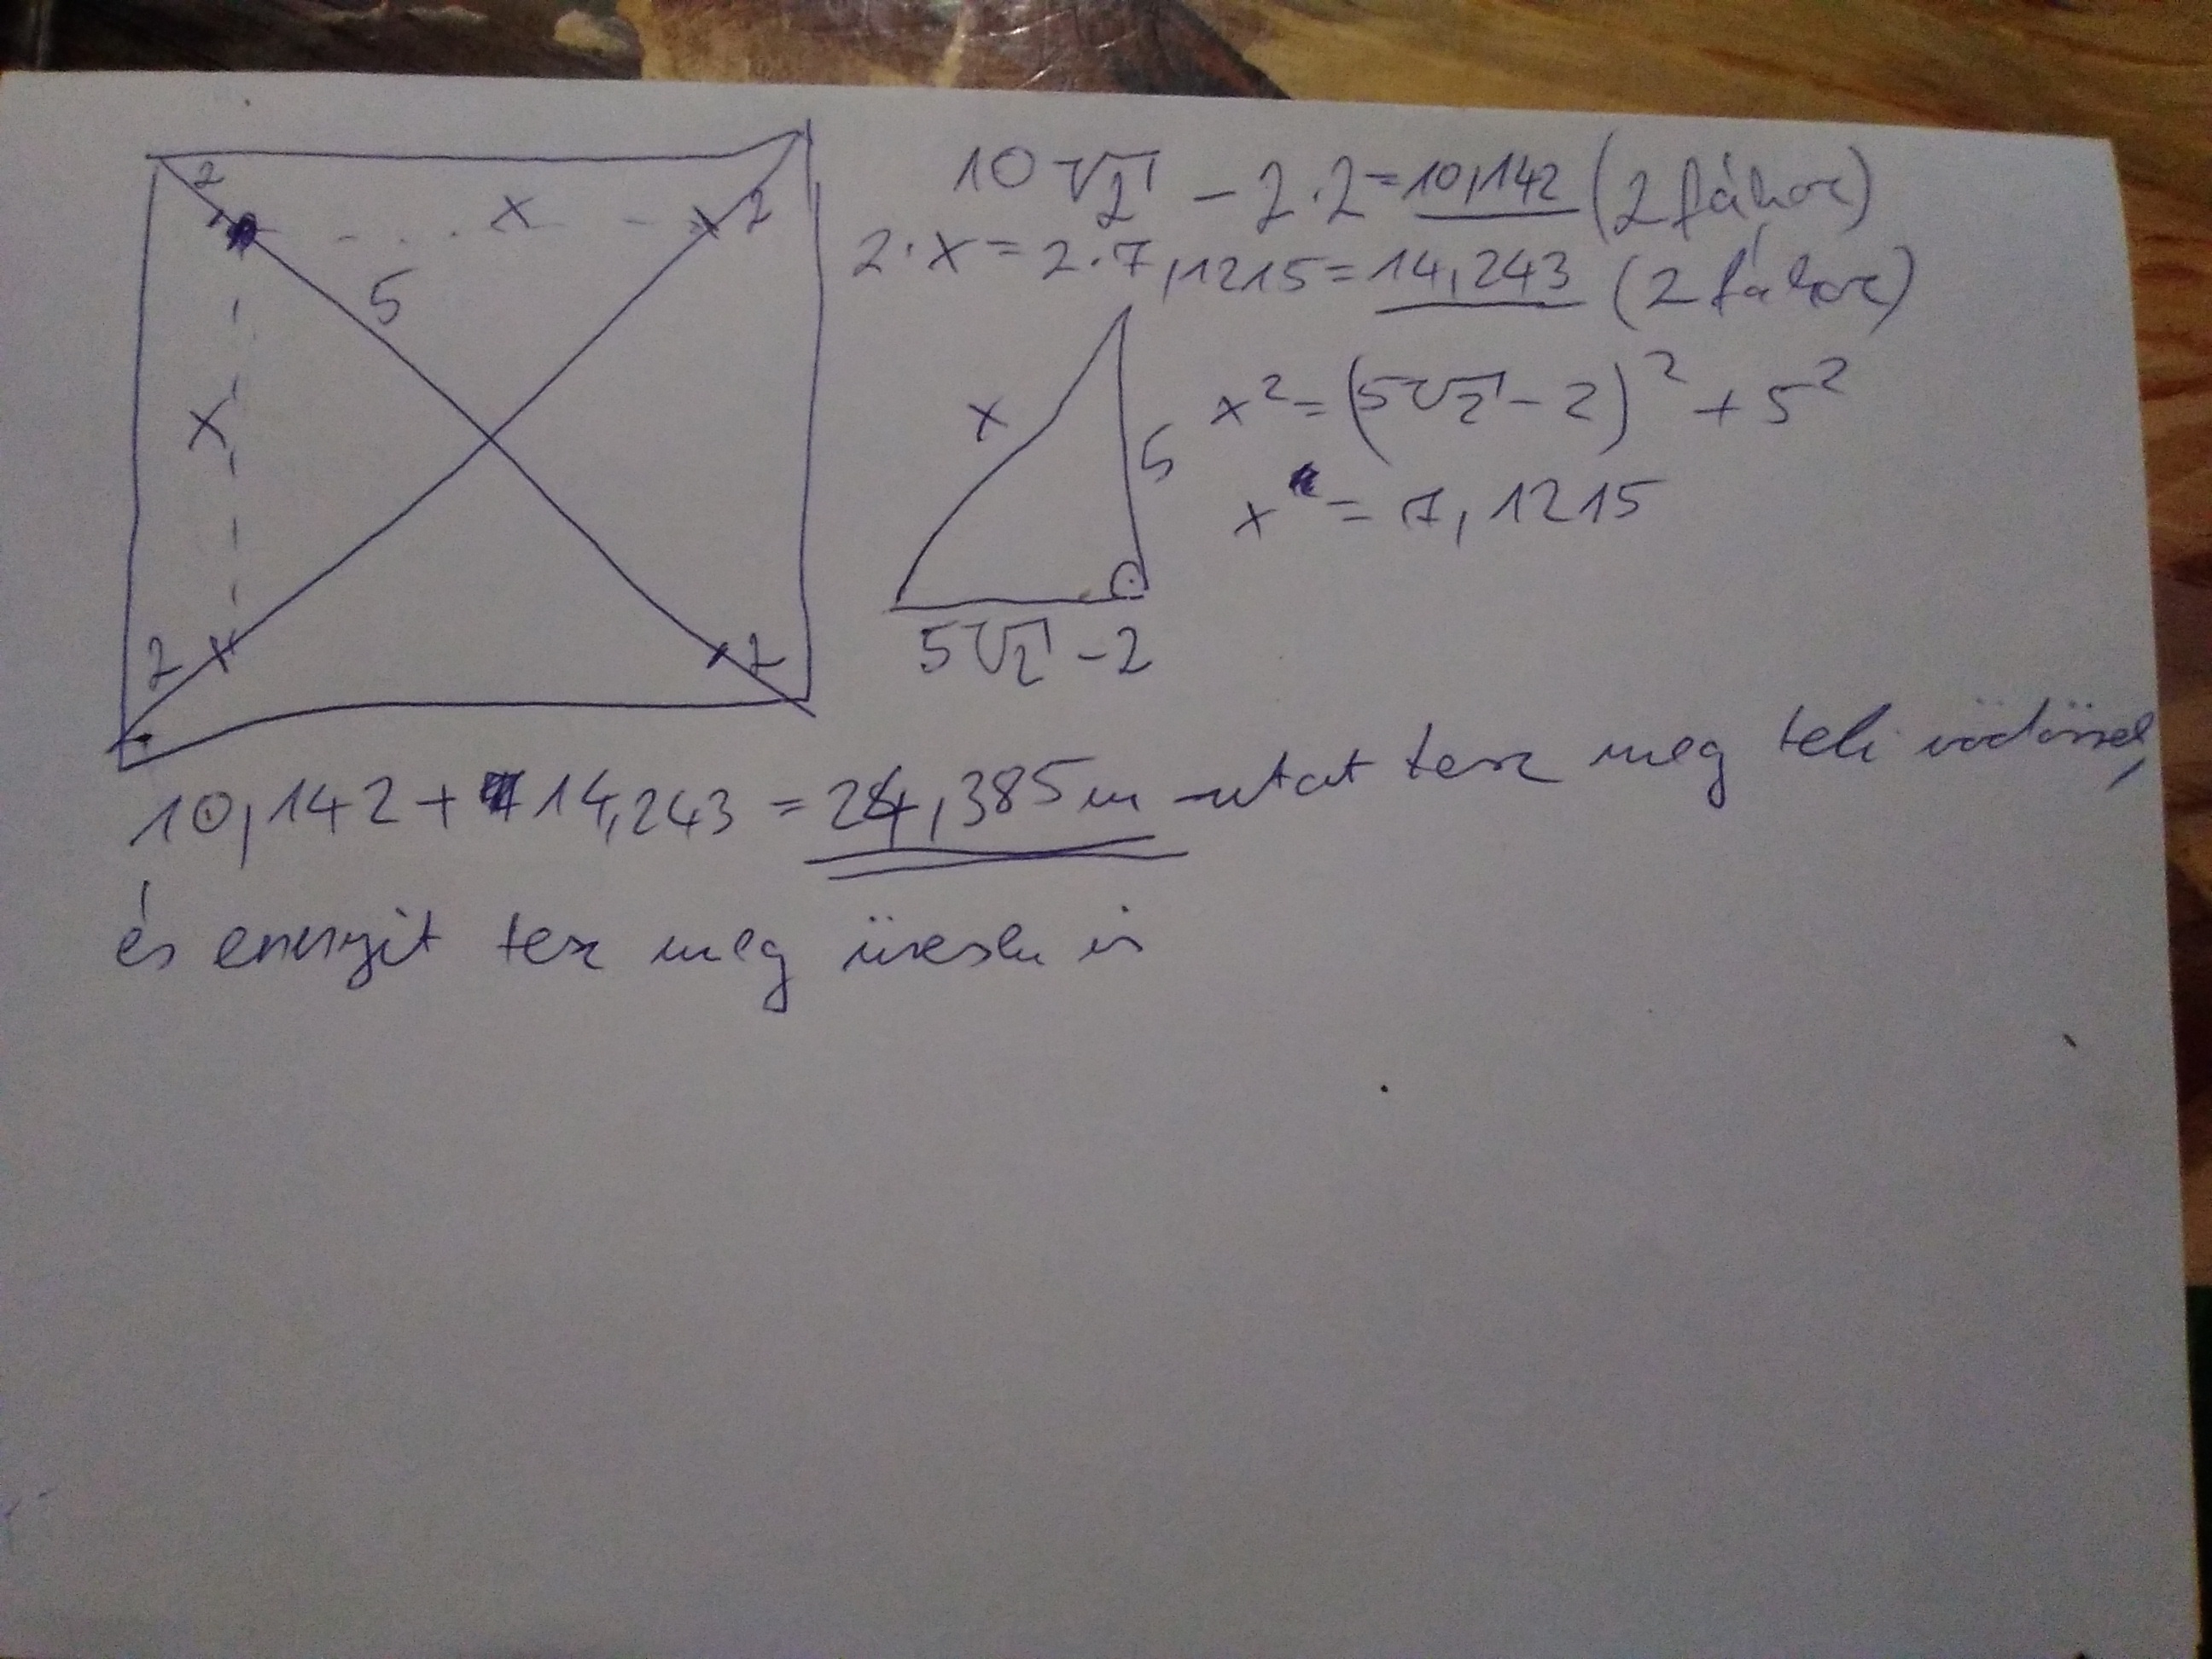 2 x 2
5
x
2 2
10√2 - 2·2 = 10,142 (2 fához)
2·x = 2·7,1215 = 14,243 (2 fához)
x 5
5√2 - 2
x² = (5√2 - 2)² + 5²
x = 7,1215
10,142 + 14,243 = 24,385 m -utat tesz meg teli vödörrel,
és ennyit tesz meg üresen is